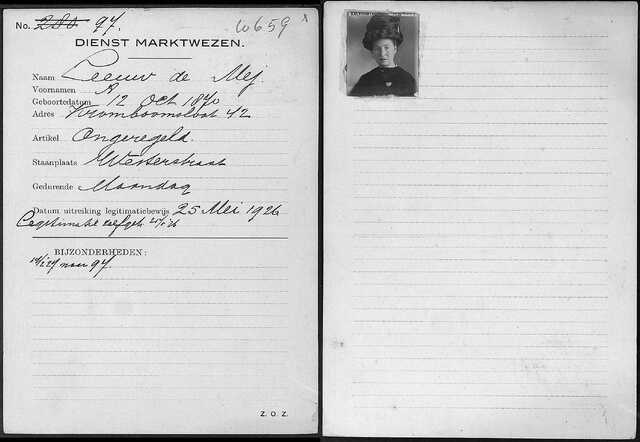 No. 280 97. W659
DIENST MARKTWEZEN.
Naam Leeuw de Mej
Voornamen A
Geboortedatum 12 Oct 1870
Adres Kromboomsloot 42
Artikel Ongeregeld.
Staanplaats Westerstraat
Gedurende Maandag
Datum uitreiking legitimatiebewijs 25 Mei 1926
Legitimatie
BIJZONDERHEDEN:
naar 97.
Z. O. Z.